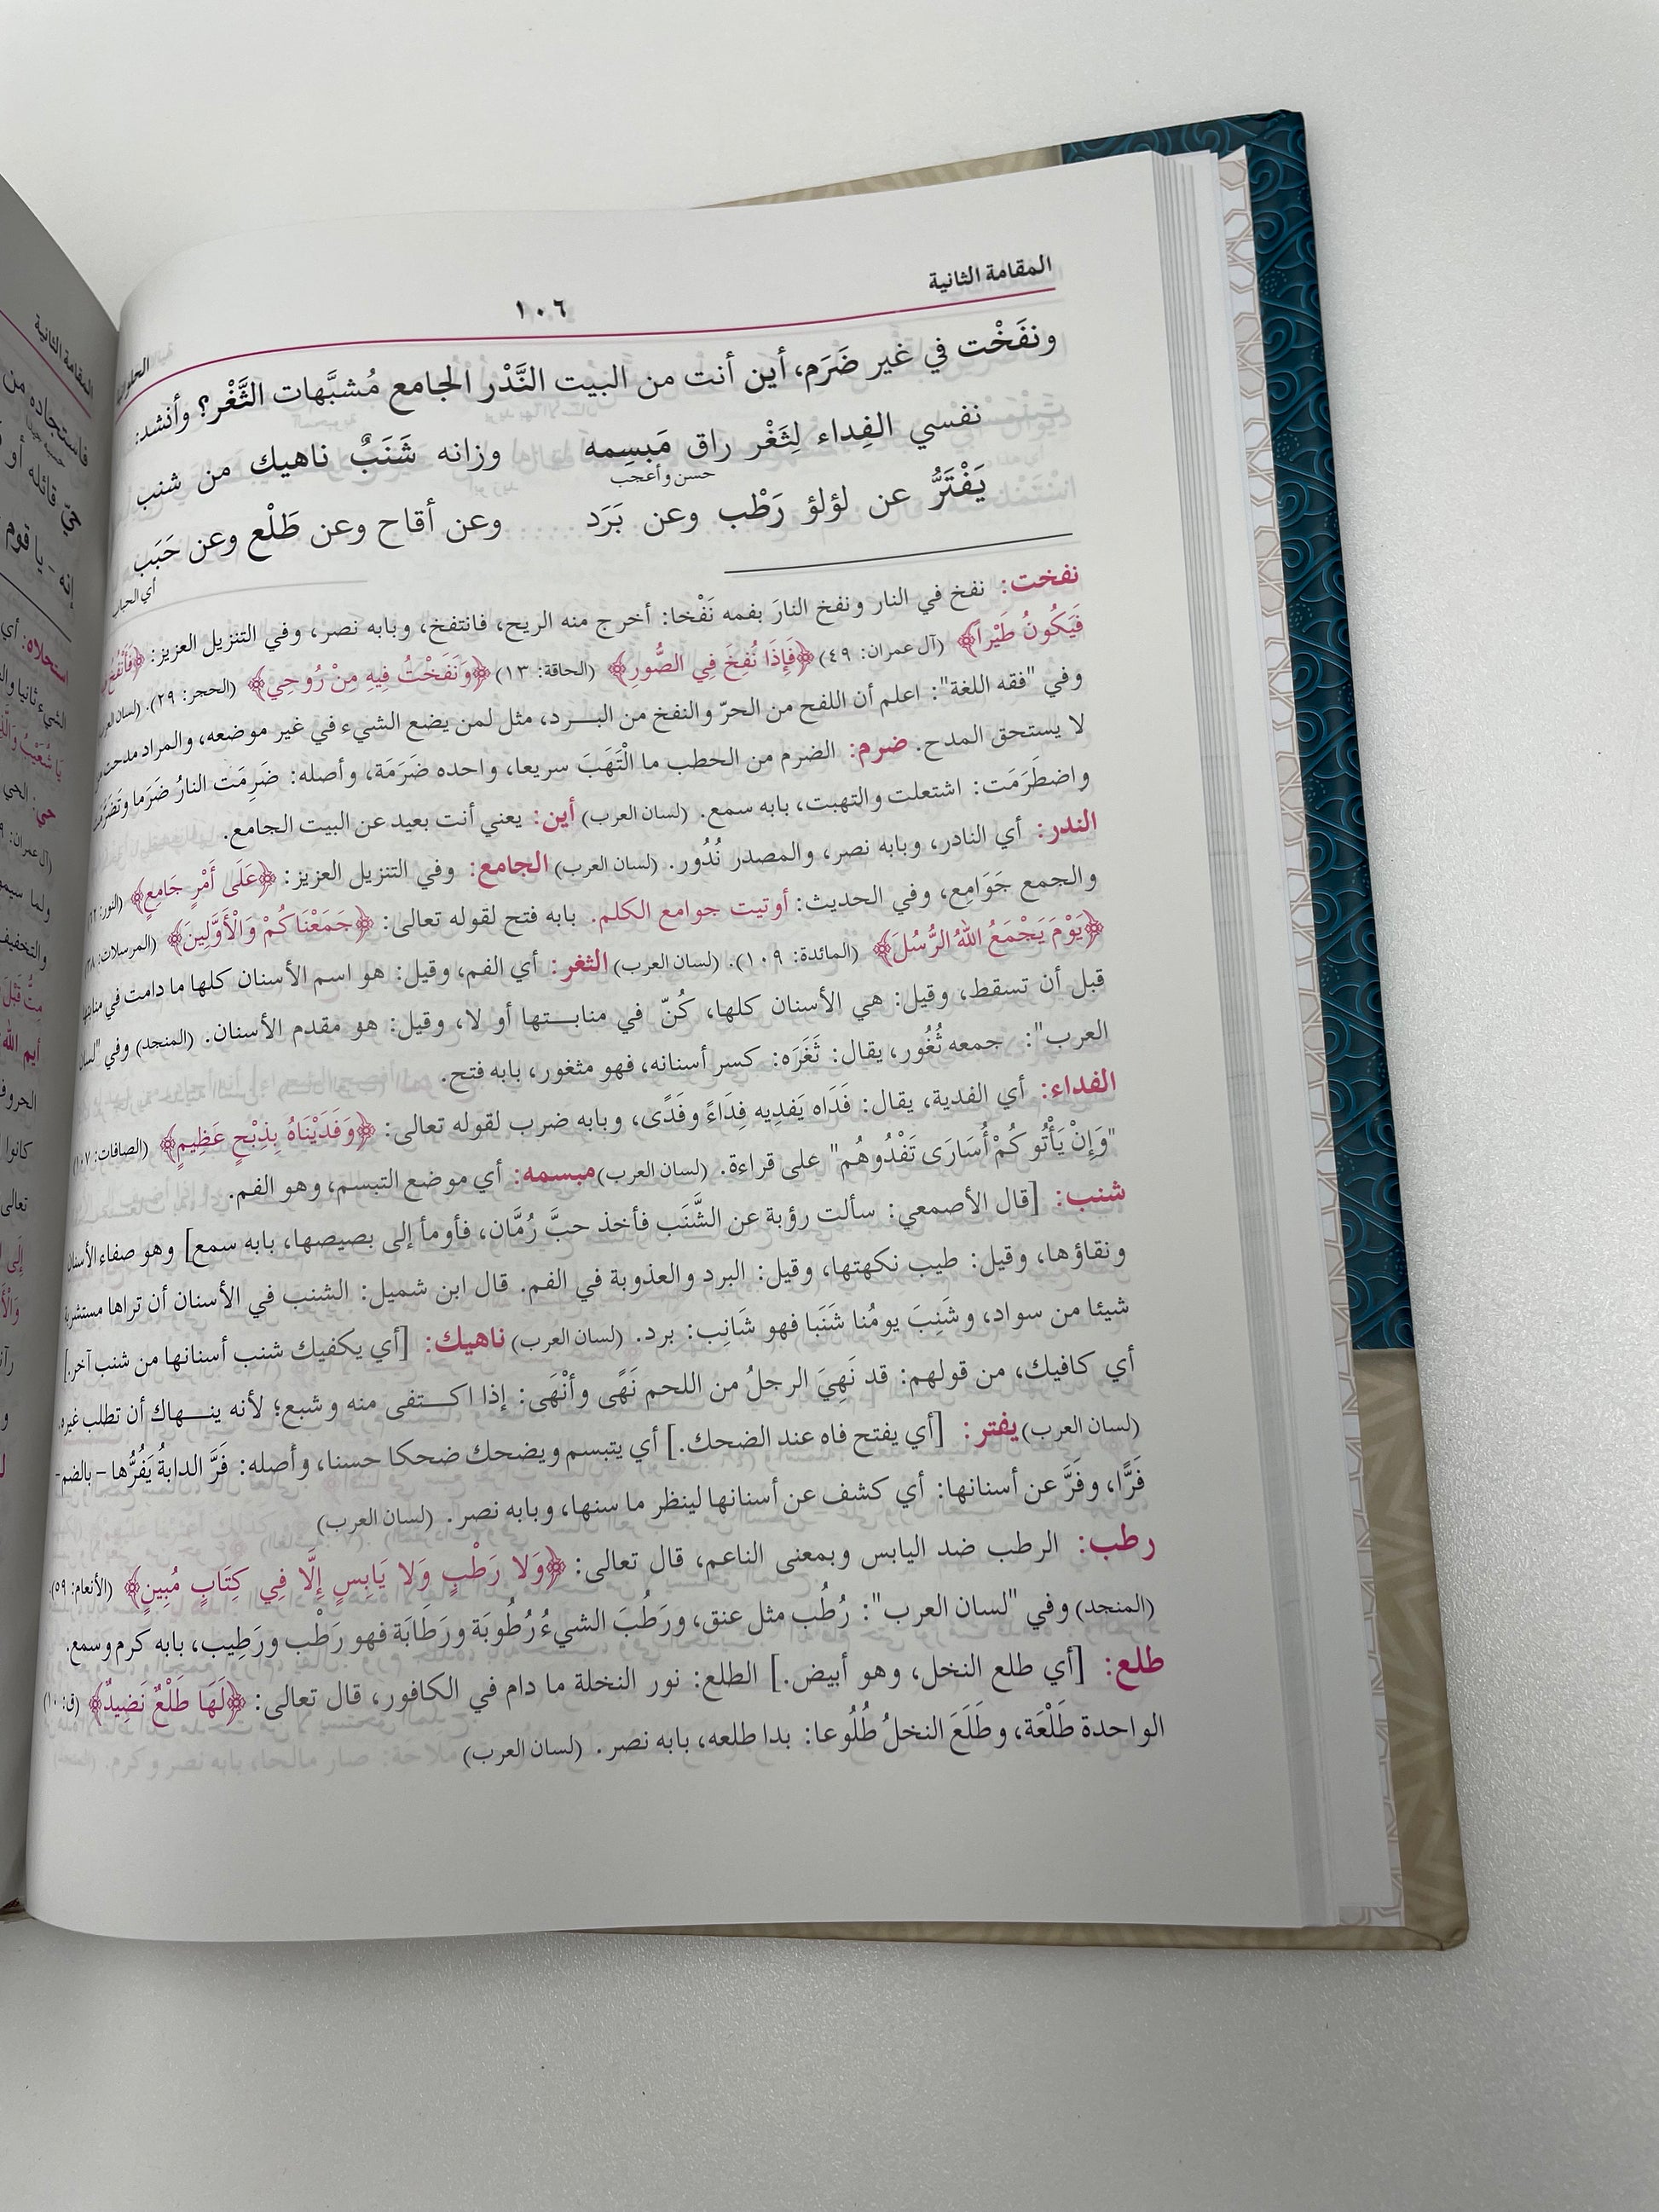 المقامة الثانية
١٠٦
الحلوانية
ونفَخْت في غير ضَرَم، أين أنت من البيت النَّدْر الجامع مُشبَّهات الثَّغْر؟ وأنشد:
نفسي الفِداء لِثَغْر راق مَبسِمه وزانه شَنَبٌ ناهيك من شنب
حسن وأعجب
يَفْتَرُّ عن لؤلؤ رَطْب وعن بَرَد وعن أقاح وعن طَلْع وعن حَبَب
أي الحباب
نفخت: نفخ في النار ونفخ النارَ بفمه نَفْخا: أخرج منه الريح، فانتفخ، وبابه نصر، وفي التنزيل العزيز: ﴿فَأَنْفُخُ
فَيَكُونُ طَيْراً﴾ (آل عمران: ٤٩) ﴿فَإِذَا نُفِخَ فِي الصُّورِ﴾ (الحاقة: ١٣) ﴿وَنَفَخْتُ فِيهِ مِنْ رُوحِي﴾ (الحجر: ٢٩). (لسان العرب)
وفي "فقه اللغة": اعلم أن اللفح من الحرّ والنفخ من البرد، مثل لمن يضع الشيء في غير موضعه، والمراد مدحت من
لا يستحق المدح. ضرم: الضرم من الحطب ما الْتَهَبَ سريعا، واحده ضَرَمَة، وأصله: ضَرِمَت النارُ ضَرَما وتَضَرَّمَت
واضطَرَمَت: اشتعلت والتهبت، بابه سمع. (لسان العرب) أين: يعني أنت بعيد عن البيت الجامع.
الندر: أي النادر، وبابه نصر، والمصدر نُدُور. (لسان العرب) الجامع: وفي التنزيل العزيز: ﴿عَلَى أَمْرٍ جَامِعٍ﴾ (النور: ٦٢)
والجمع جَوَامِع، وفي الحديث: أوتيت جوامع الكلم. بابه فتح لقوله تعالى: ﴿جَمَعْنَاكُمْ وَالْأَوَّلِينَ﴾ (المرسلات: ٣٨)
﴿يَوْمَ يَجْمَعُ اللهُ الرُّسُلَ﴾ (المائدة: ١٠٩). (لسان العرب) الثغر: أي الفم، وقيل: هو اسم الأسنان كلها ما دامت في منابتها
قبل أن تسقط، وقيل: هي الأسنان كلها، كُنّ في منابتها أو لا، وقيل: هو مقدم الأسنان. (المنجد) وفي "لسان
العرب": جمعه ثُغُور، يقال: ثَغَرَه: كسر أسنانه، فهو مثغور، بابه فتح.
الفداء: أي الفدية، يقال: فَدَاه يَفدِيه فِدَاءً وفَدًى، وبابه ضرب لقوله تعالى: ﴿وَفَدَيْنَاهُ بِذِبْحٍ عَظِيمٍ﴾ (الصافات: ١٠٧)
"وَإِنْ يَأْتُوكُمْ أُسَارَى تَفْدُوهُم" على قراءة. (لسان العرب) مبسمه: أي موضع التبسم، وهو الفم.
شنب: [قال الأصمعي: سألت رؤبة عن الشَّنَب فأخذ حبَّ رُمَّان، فأومأ إلى بصيصها، بابه سمع] وهو صفاء الأسنان
ونقاؤها، وقيل: طيب نكهتها، وقيل: البرد والعذوبة في الفم. قال ابن شميل: الشنب في الأسنان أن تراها مستشربة
شيئا من سواد، وشَنِبَ يومُنا شَنَبَا فهو شَانِب: برد. (لسان العرب) ناهيك: [أي يكفيك شنب أسنانها من شنب آخر.]
أي كافيك، من قولهم: قد نَهِيَ الرجلُ من اللحم نَهًى وأنْهَى: إذا اكتفى منه وشبع؛ لأنه ينهاك أن تطلب غيره.
(لسان العرب) يفتر: [أي يفتح فاه عند الضحك.] أي يتبسم ويضحك ضحكا حسنا، وأصله: فَرَّ الدابةُ يَفُرُّها -بالضم-
فَرًّا، وفَرَّ عن أسنانها: أي كشف عن أسنانها لينظر ما سنها، وبابه نصر. (لسان العرب)
رطب: الرطب ضد اليابس وبمعنى الناعم، قال تعالى: ﴿وَلا رَطْبٍ وَلا يَابِسٍ إِلَّا فِي كِتَابٍ مُبِينٍ﴾ (الأنعام: ٥٩).
(المنجد) وفي "لسان العرب": رُطُب مثل عنق، ورَطُبَ الشيءُ رُطُوبَة ورَطَابَة فهو رَطْب ورَطِيب، بابه كرم وسمع.
طلع: [أي طلع النخل، وهو أبيض.] الطلع: نور النخلة ما دام في الكافور، قال تعالى: ﴿لَهَا طَلْعٌ نَضِيدٌ﴾ (ق: ١٠)
الواحدة طَلْعَة، وطَلَعَ النخلُ طُلُوعا: بدا طلعه، بابه نصر. (لسان العرب)